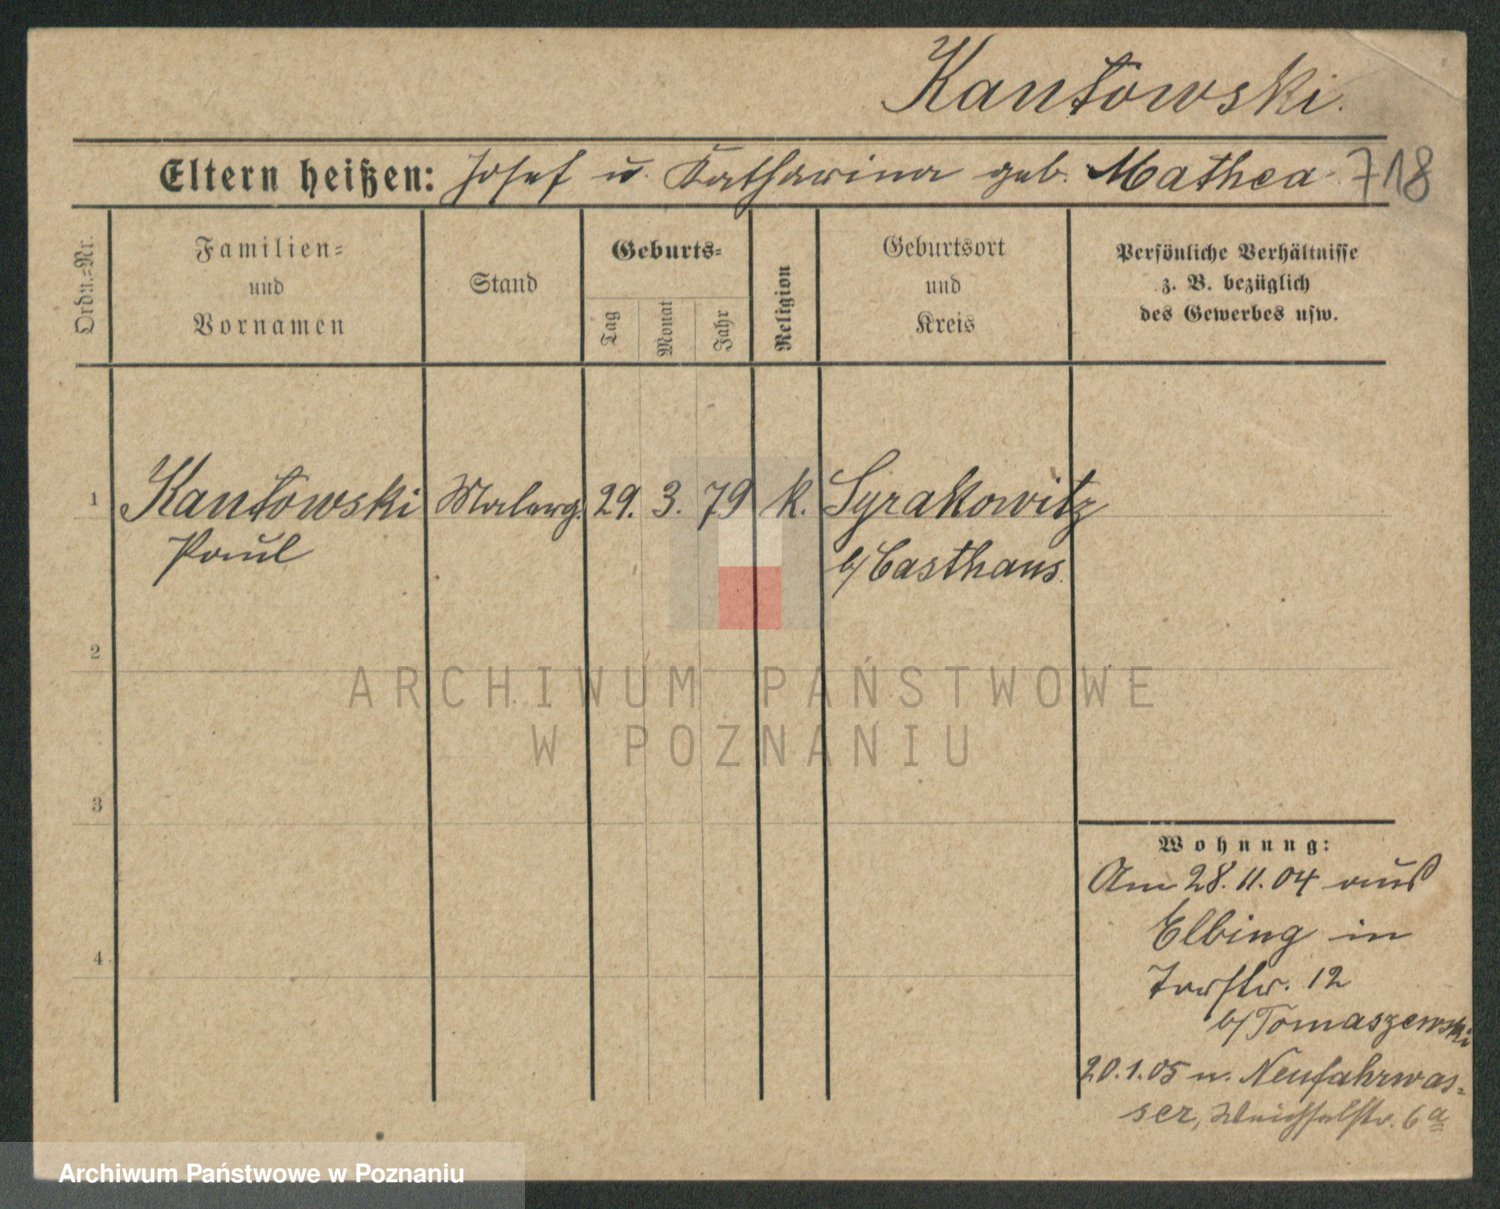 Kantowski.
Eltern heißen: Josef u. Katharina geb. Mathea 718
Ordn.=Nr.
Familien=
und
Vornamen
Stand
Geburts=
Tag
Monat
Jahr
Religion
Geburtsort
und
Kreis
Persönliche Verhältnisse
z. B. bezüglich
des Gewerbes usw.
1 Kantowski Malerg. 29. 3. 79 k. Syrakowitz
Paul b/Casthaus.
2
ARCHIWUM PAŃSTWOWE
W POZNANIU
3
Wohnung:
Am 28.11.04 aus
Elbing in
4
Torstr. 12
b/Tomaszewski
20.1.05 n. Neufahrwas-
ser, Weichselstr. 6a
Archiwum Państwowe w Poznaniu